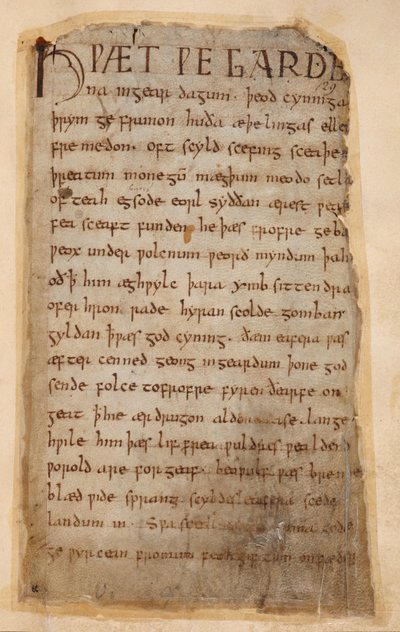 HǷÆT ǷE GARDE
na ingear dagum · þeod cyninga
þrym ge frunon huða æþelingas elle
fre medon. oft scyld scefing sceaþe
þreatum monegū mægþum meodo setla
of teah egsode eorl syððan ærest ƿear
fea sceaft funden he þæs frofre geba
ƿeox under ƿolcnum ƿeorð myndum þah
oð þ̄ him æghƿylc þara ymb sittendra
ofer hron rade hyran scolde gomban
gyldan þ̄ ƿæs god cyning. ðæm eafera ƿæs
æfter cenned geong ingeardum þone god
sende folce tofrofre fyren ðearfe on
geat þ̄ hie ær drugon aldor ase. lange
hƿile him þæs lif frea ƿuldres ƿealdend
ƿorold are for geaf. beoƿulf ƿæs breme
blæd ƿide sprang scyldes eafera scede
landum in. Sƿa sceal gode
ge ƿyrcean fromum feoh giftum on fæder